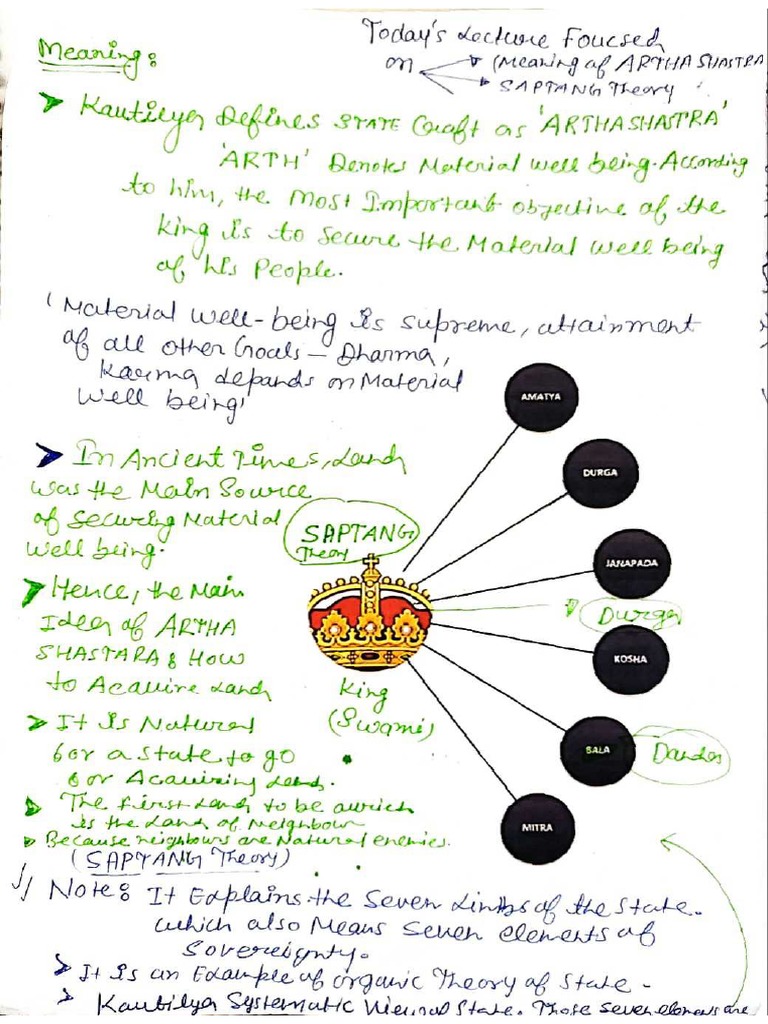 Today's Lecture Foucsed
on (Meaning of ARTHASHASTRA
SAPTANG Theory
Meaning:
Kautilya Defines STATE Craft as 'ARTHASHASTRA'
'ARTH' Denotes Material well being. According
to him, the most Important objective of the
king is to secure the Material well being
of his People.
'Material well-being is supreme, attainment
of all other Goals – Dharma,
Karma depands on Material
well being'
In Ancient Times, Land
was the Main Source
of Securing Material
well being.
Hence, the Main
Idea of ARTHA
SHASTARA & How
to Acquire Land
It is Natural
for a state to go
for Acquiring Land.
The first Land to be
is the Land of Neighbour
Because neighbours are Natural enemies.
SAPTANG
Theory
King
(Swami)
AMATYA
DURGA
JANAPADA
Durga
KOSHA
BALA
Danda
MITRA
(SAPTANG Theory)
Note: It Explains the Seven Limbs of the State.
which also Means seven elements of
Sovereignty.
It is an Example of organic Theory of State.
Kautilya Systematic State. Those seven elements are